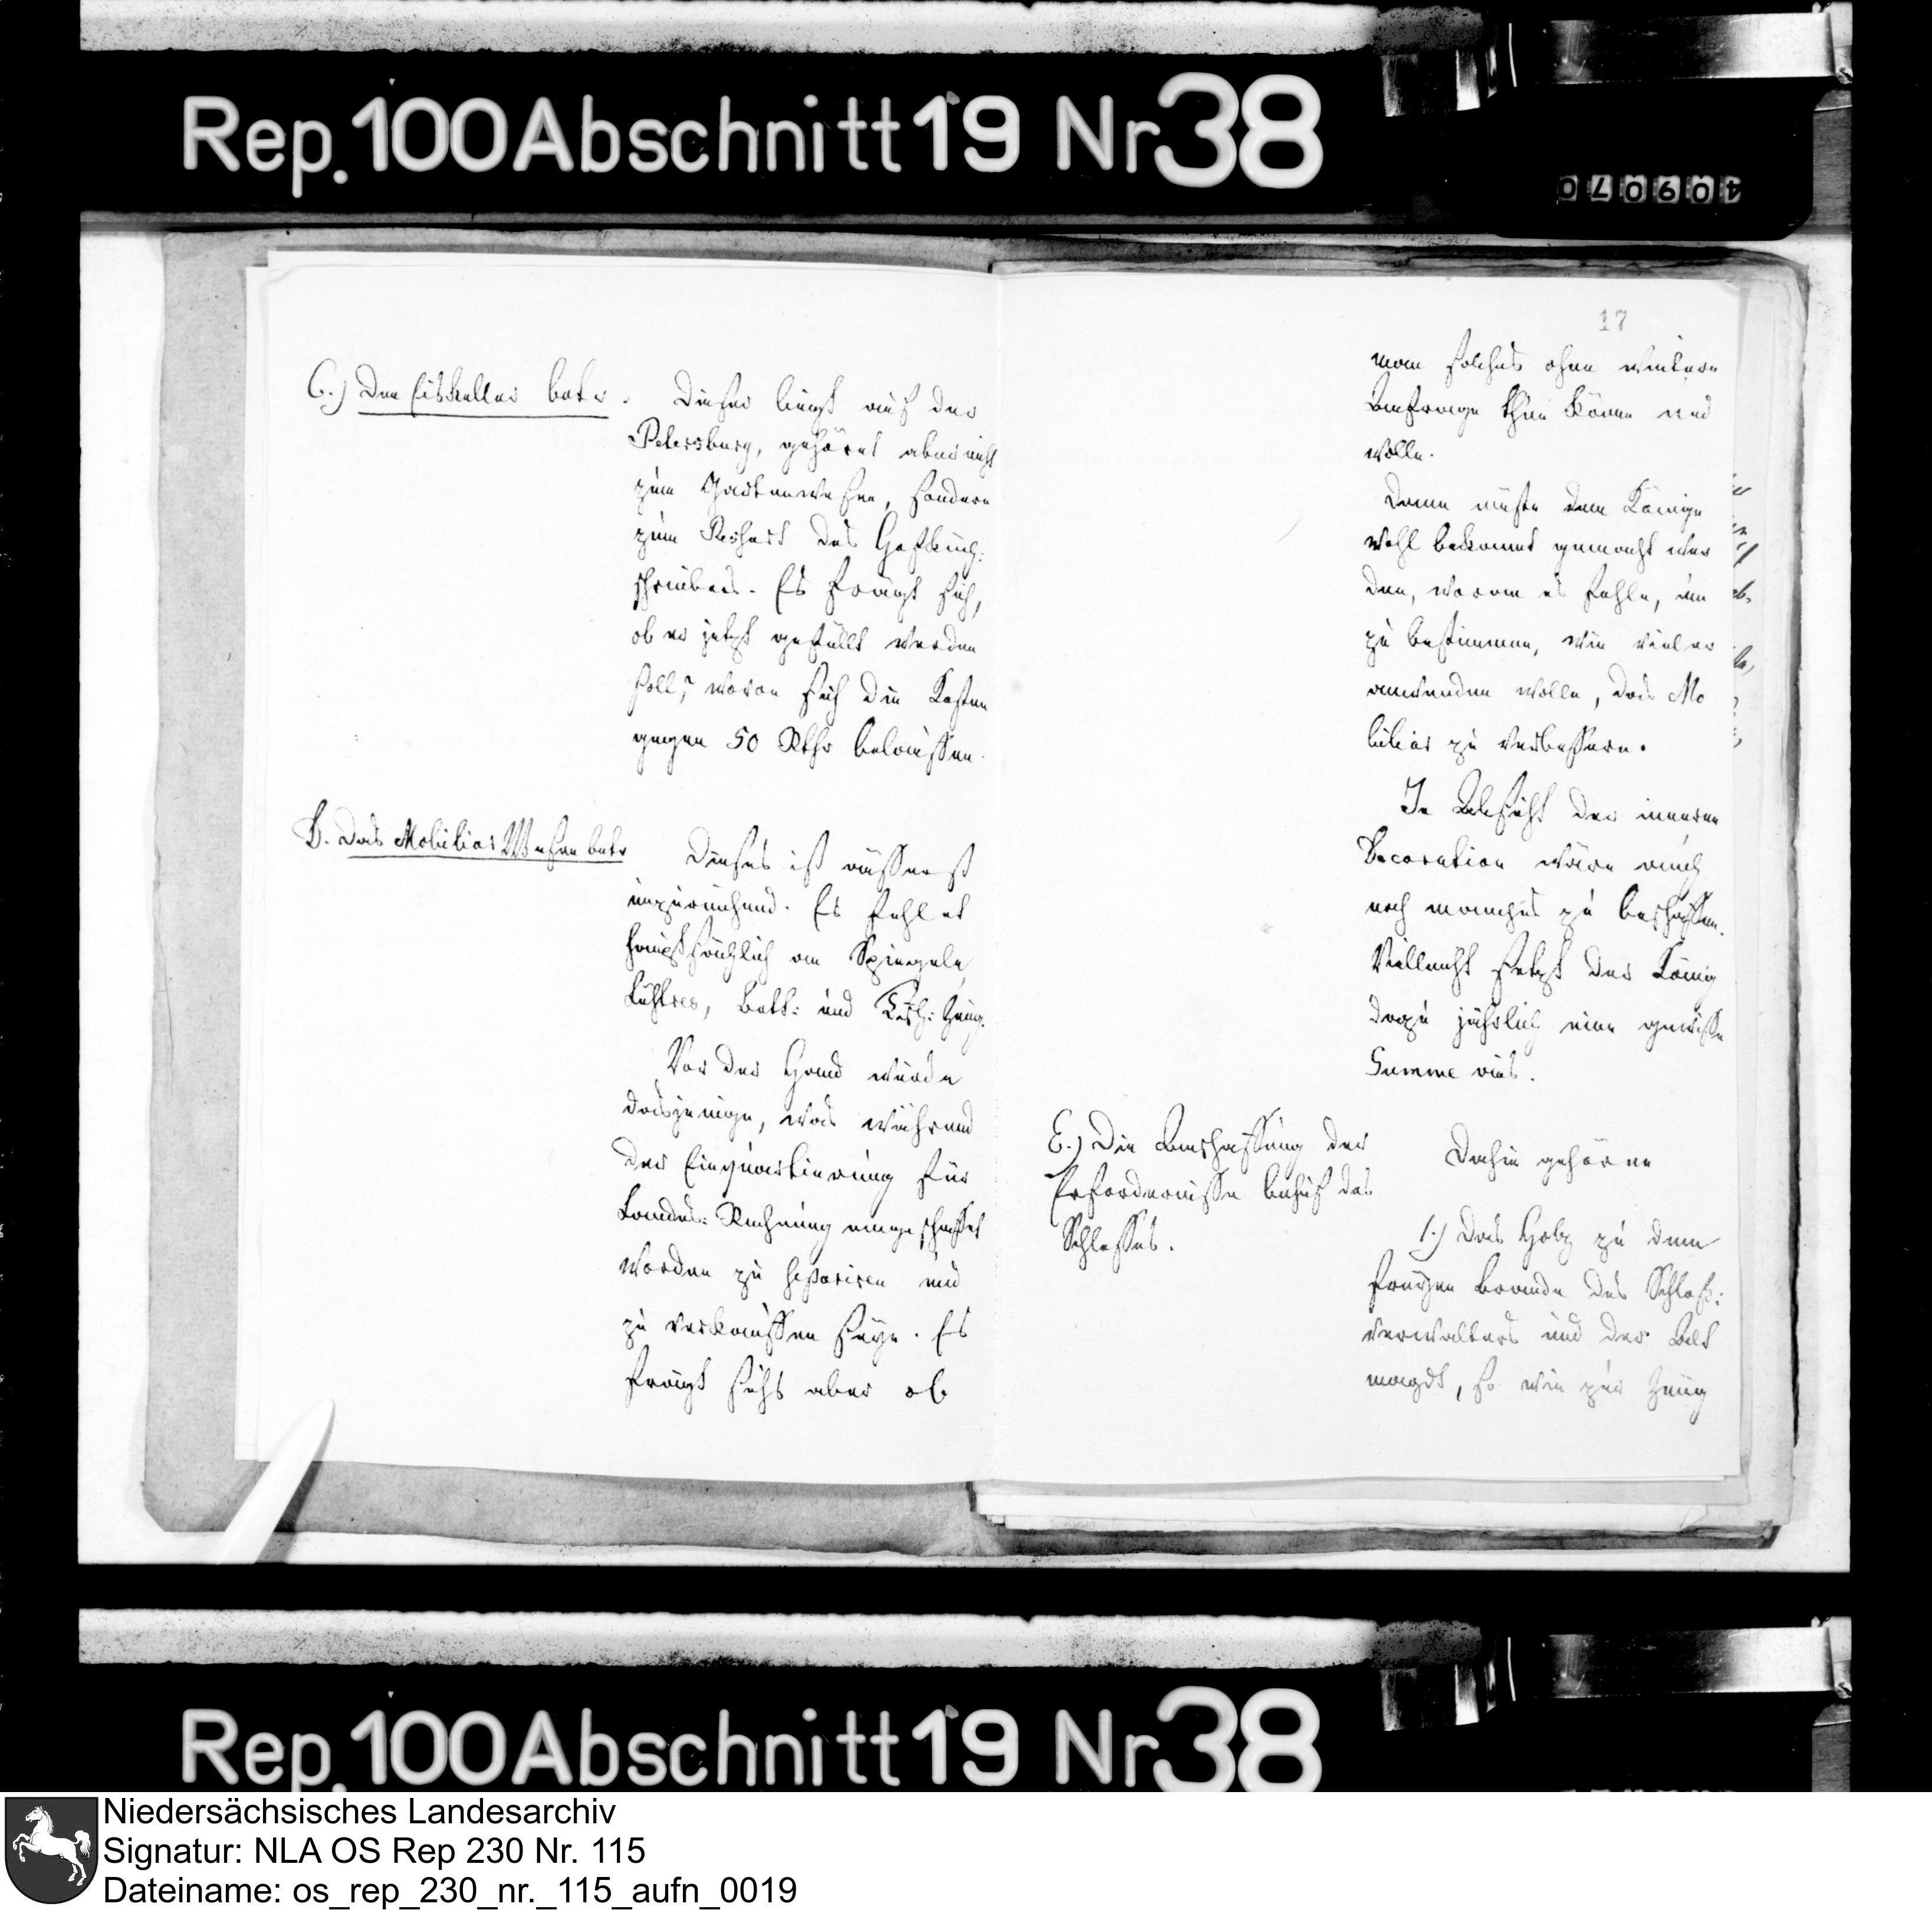 Rep. 100 Abschnitt 19 Nr 38
409070
C.) Den Eiskeller betr.
Dieser liegt auf der
Petersburg, gehöret aber nicht
zum Gartenwesen, sondern
zum Ressort des Hofbuch:
schreibers. Es frägt sich,
ob er jetzt gefüllt werden
soll, wovon sich die Kosten
gegen 50 Rthr belaussen.
D. Das Mobiliar Wesen betr
Dieses ist äusserst
unzureichend. Es fehlet
hauptsächlich an Spiegeln
Lüstres, Bett: und Tisch: Zeug.
Vor der Hand würde
dasjenige, was während
der Einquartierung für
Landes: Rechnung angeschaffet
worden zu separiren und
zu verkauffen seyn. Es
frägt sichs aber ob
17
man solches ohne weitere
Anfrage thun könne und
wolle.
Dann müste dem Könige
wohl bekannt gemacht wer
den, woran es fehle, um
zu bestimmen, wie viel er
anwenden wolle, das Mo
biliar zu verbessern.
In Absicht der inneren
Decoration wäre auch
noch manches zu beschaffen.
Villeicht setzt der König
dazu jährlich eine gewisse
Summe aus.
E.) Die Anschaffung der
Erfordernisse behuf des
Schlosses.
Dahin gehören
1.) Das Holz zu dem
freyen Brande des Schloß:
verwalters und der Bett
magdt, so wie zur Heitz
Rep. 100 Abschnitt 19 Nr 38
Niedersächsisches Landesarchiv
Signatur: NLA OS Rep 230 Nr. 115
Dateiname: os_rep_230_nr._115_aufn_0019